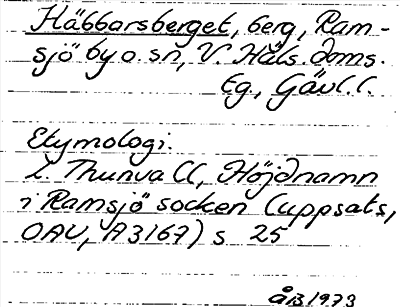 Häbbarsberget, berg, Ram-
sjö by o. sn, V. Häls. doms.
tg, Gävl. l.
Etymologi.
L. Thunva Cl, Höjdnamn
i Ramsjö socken (uppsats,
OAU, A3167) s 25
ÅB 1973